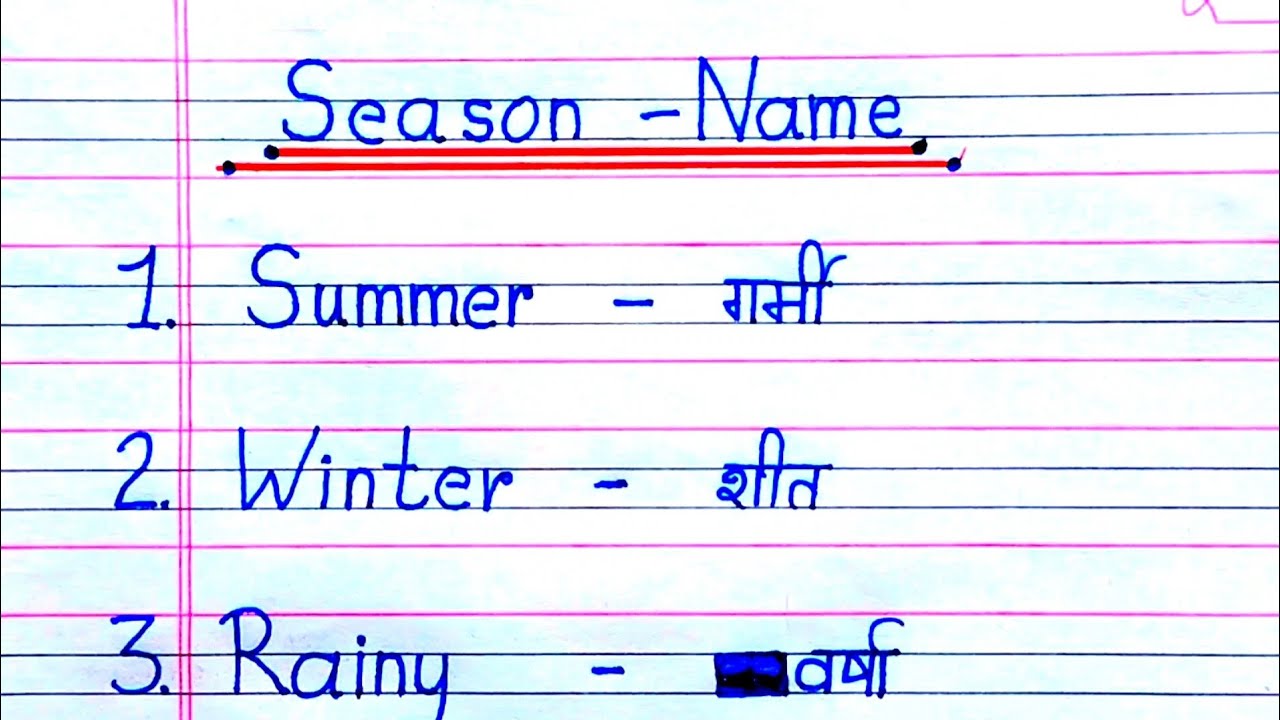 Season - Name
1. Summer - गर्मी
2. Winter - शीत
3. Rainy - वर्षा